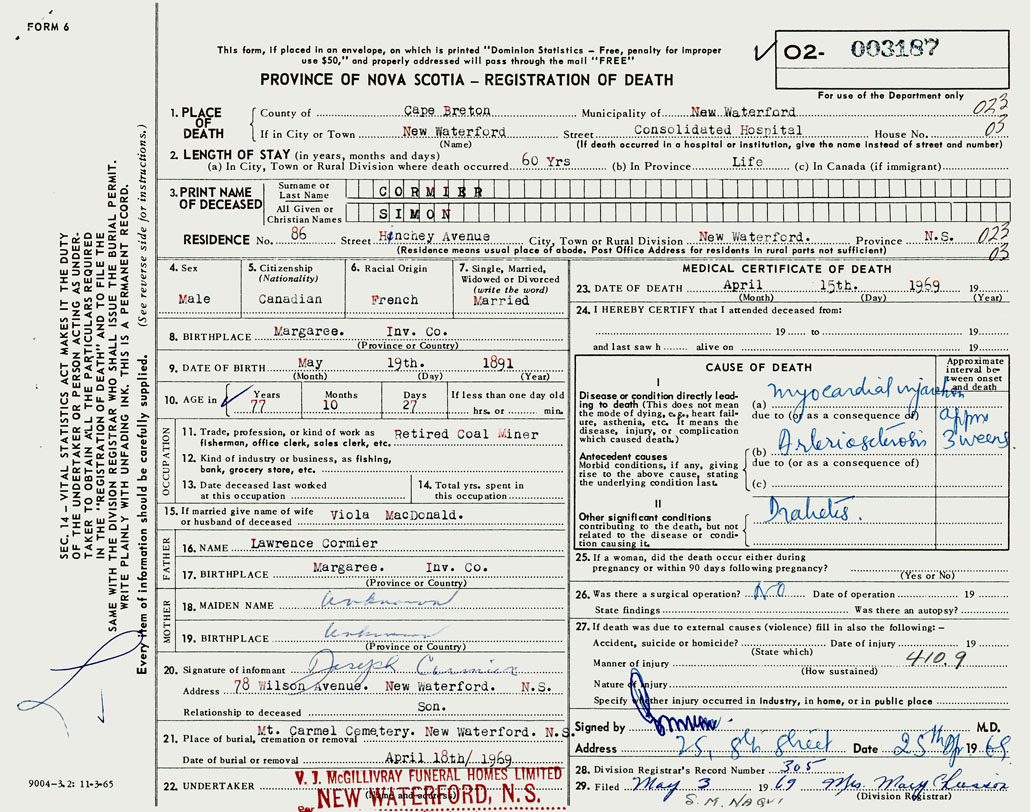 FORM 6
This form, if placed in an envelope, on which is printed "Dominion Statistics – Free, penalty for improper
use $50," and properly addressed will pass through the mail "FREE"
PROVINCE OF NOVA SCOTIA – REGISTRATION OF DEATH
02- 003187
For use of the Department only
1. PLACE OF DEATH
County of Cape Breton Municipality of New Waterford 023
If in City or Town New Waterford Street Consolidated Hospital House No. 03
(Name) (If death occurred in a hospital or institution, give the name instead of street and number)
2. LENGTH OF STAY (in years, months and days)
(a) In City, Town or Rural Division where death occurred 60 Yrs (b) In Province Life (c) In Canada (if immigrant)
3. PRINT NAME OF DECEASED
Surname or Last Name CORMIER
All Given or Christian Names SIMON
RESIDENCE No. 86 Street Hinchey Avenue City, Town or Rural Division New Waterford. Province N.S. 023
(Residence means usual place of abode. Post Office Address for residents in rural parts not sufficient) 03
4. Sex
Male
5. Citizenship
(Nationality)
Canadian
6. Racial Origin
French
7. Single, Married,
Widowed or Divorced
(write the word)
Married
8. BIRTHPLACE Margaree. Inv. Co.
(Province or Country)
9. DATE OF BIRTH May 19th. 1891
(Month) (Day) (Year)
10. AGE in Years Months Days If less than one day old
77 10 27 hrs. or min.
OCCUPATION
11. Trade, profession, or kind of work as Retired Coal Miner
fisherman, office clerk, sales clerk, etc.
12. Kind of industry or business, as fishing,
bank, grocery store, etc.
13. Date deceased last worked
at this occupation
14. Total yrs. spent in
this occupation
15. If married give name of wife
or husband of deceased Viola MacDonald.
FATHER
16. NAME Lawrence Cormier
17. BIRTHPLACE Margaree. Inv. Co.
(Province or Country)
MOTHER
18. MAIDEN NAME Unknown
19. BIRTHPLACE Unknown
(Province or Country)
20. Signature of informant Joseph Cormier
Address 78 Wilson Avenue. New Waterford. N.S.
Relationship to deceased Son.
21. Place of burial, cremation or removal Mt. Carmel Cemetery. New Waterford. N.S.
Date of burial or removal April 18th/ 1969
22. UNDERTAKER V. J. McGILLIVRAY FUNERAL HOMES LIMITED
(Name and address)
Per NEW WATERFORD, N. S.
MEDICAL CERTIFICATE OF DEATH
23. DATE OF DEATH April 15th. 1969 19
(Month) (Day) (Year)
24. I HEREBY CERTIFY that I attended deceased from:
19 to 19
and last saw h alive on 19
CAUSE OF DEATH
Approximate
interval be-
tween onset
and death
I
Disease or condition directly lead-
ing to death (This does not mean
the mode of dying, e.g., heart fail-
ure, asthenia, etc. It means the
disease, injury, or complication
which caused death.)
(a) myocardial infarction
due to (or as a consequence of) appx
Antecedent causes
Morbid conditions, if any, giving
rise to the above cause, stating
the underlying condition last.
(b) Arteriosclerosis 3 weeks
due to (or as a consequence of)
(c)
II
Other significant conditions
contributing to the death, but not
related to the disease or condi-
tion causing it.
Diabetes.
25. If a woman, did the death occur either during
pregnancy or within 90 days following pregnancy?
(Yes or No)
26. Was there a surgical operation? NO Date of operation 19
State findings Was there an autopsy?
27. If death was due to external causes (violence) fill in also the following: –
Accident, suicide or homicide? Date of injury 19
(State which)
Manner of injury 410.9
(How sustained)
Nature of Injury
Specify whether injury occurred in Industry, in home, or in public place
Signed by M.D.
Address 25, 8th Street Date 25th Ap 1969
28. Division Registrar's Record Number 305
29. Filed May 3 1969 Mrs. Mary
(Division Registrar)
S.M. NAQUI
SEC. 14 – VITAL STATISTICS ACT MAKES IT THE DUTY
OF THE UNDERTAKER OR PERSON ACTING AS UNDER-
TAKER TO OBTAIN ALL THE PARTICULARS REQUIRED
IN THE "REGISTRATION OF DEATH" AND TO FILE THE
SAME WITH THE DIVISION REGISTRAR WHO SHALL ISSUE THE BURIAL PERMIT.
WRITE PLAINLY WITH UNFADING INK. THIS IS A PERMANENT RECORD.
Every item of information should be carefully supplied. (See reverse side for instructions.)
9004-3.2: 11-3-65